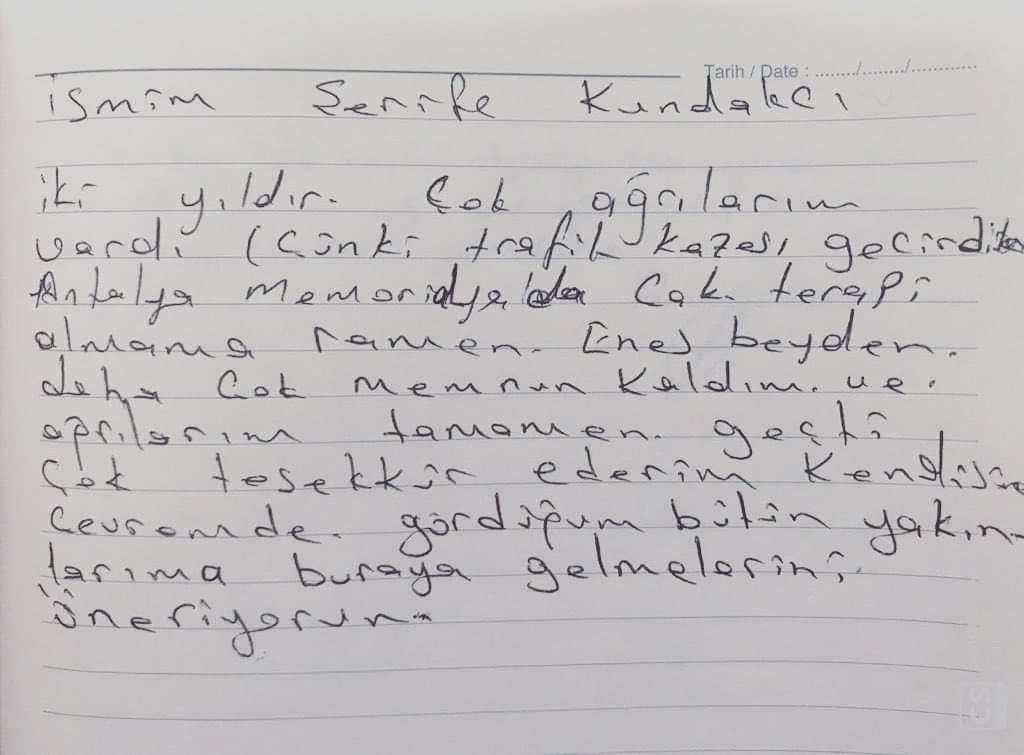 Tarih / Date : ......../......../...............
ismim Serife Kundakcı
iki yıldır. Çok ağrılarım
vardı (Cünki trafik kazası gecirdim
Antalya Memoridyalda Cok. terapi
almama ramen. Enes beyden.
daha Cok memnun Kaldım. ve.
ağrılarım tamamen. geçti
Çok tesekkür ederim Kendisin
Cevremde. gördüğüm bütün yakın
larıma buraya gelmelerini
öneriyorum